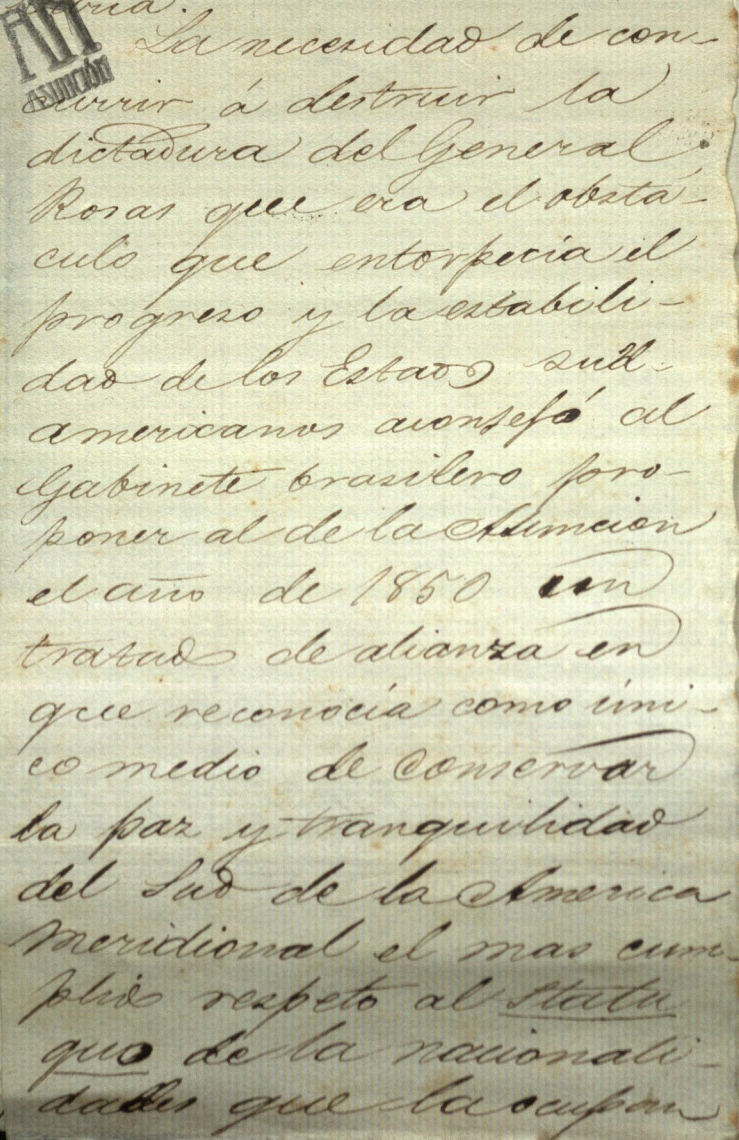 La necesidad de con-
currir á destruir la
dictadura del General
Rosas que era el obstá-
culo que entorpecia el
progreso y la estabili-
dad de los Estados sud-
americanos aconsejó al
Gabinete brasilero pro-
poner al de la Asuncion
el año de 1850 un
tratado de alianza en
que reconocía como úni-
co medio de conservar
la paz y tranquilidad
del Sud de la America
Meridional el mas cum-
plido respeto al Statu
quo de la nacionali-
dades que la ocupan
Asunción